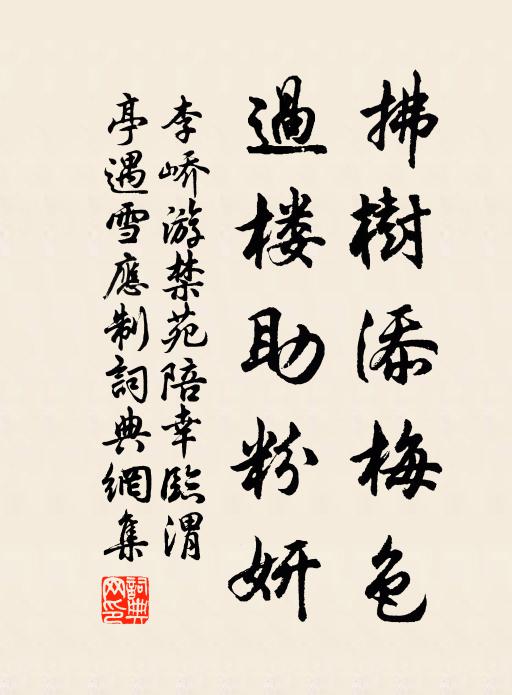 拂樹添梅色
過楼助粉妍
李峤游禁苑陪幸臨渭
亭遇雪應制詞典網集
詞典网印